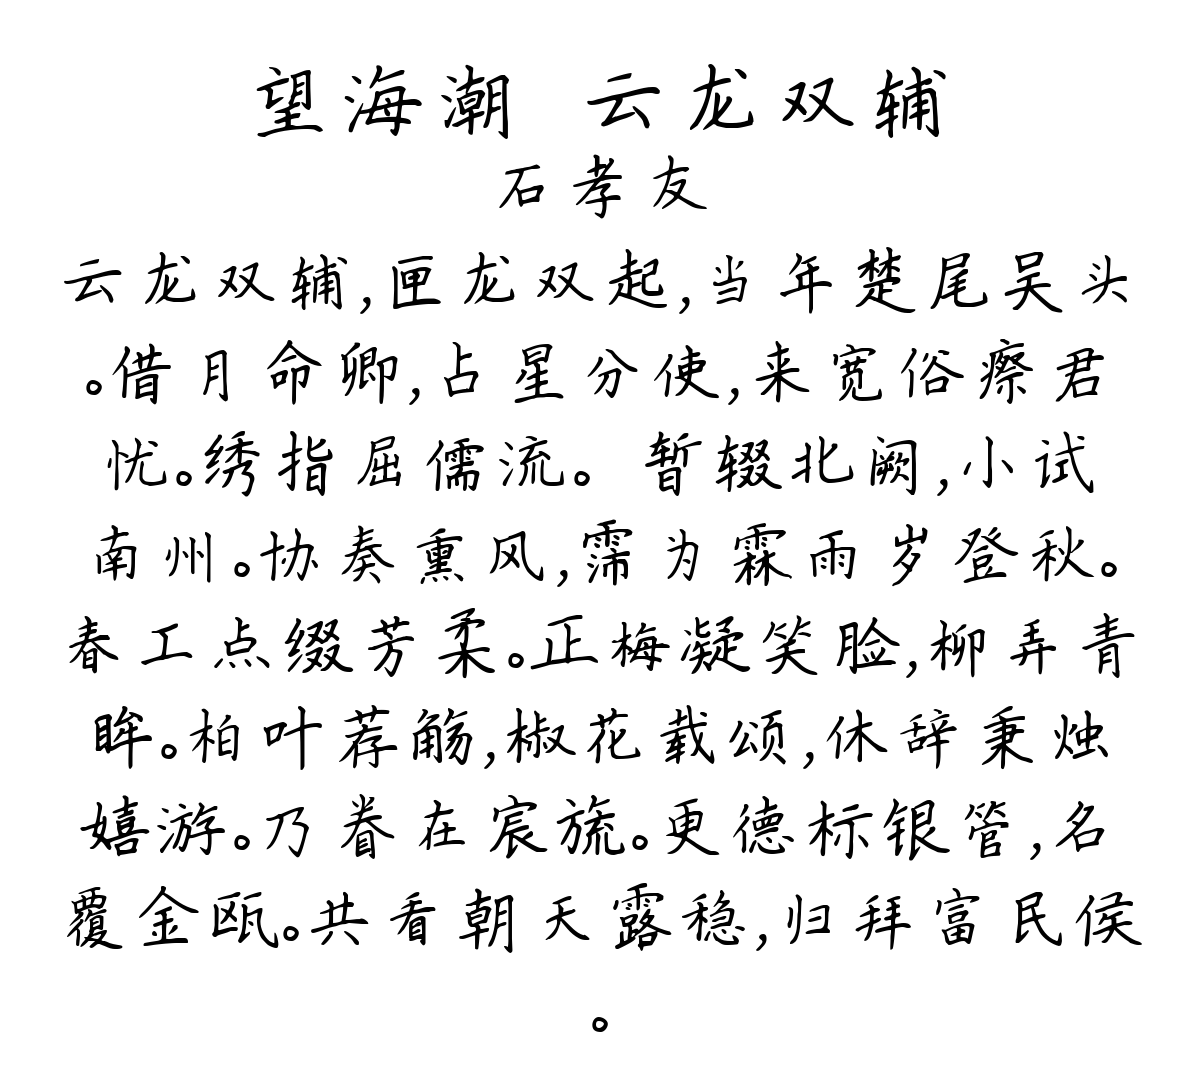 望海潮 云龙双辅
石孝友
云龙双辅,匣龙双起,当年楚尾吴头
。借月命卿,占星分使,来宽俗瘵君
忧。绣指屈儒流。 暂辍北阙,小试
南州。协奏熏风,霈为霖雨岁登秋。
春工点缀芳柔。正梅凝笑脸,柳弄青
眸。柏叶荐觞,椒花载颂,休辞秉烛
嬉游。乃眷在宸旒。更德标银管,名
覆金瓯。共看朝天露稳,归拜富民侯
。